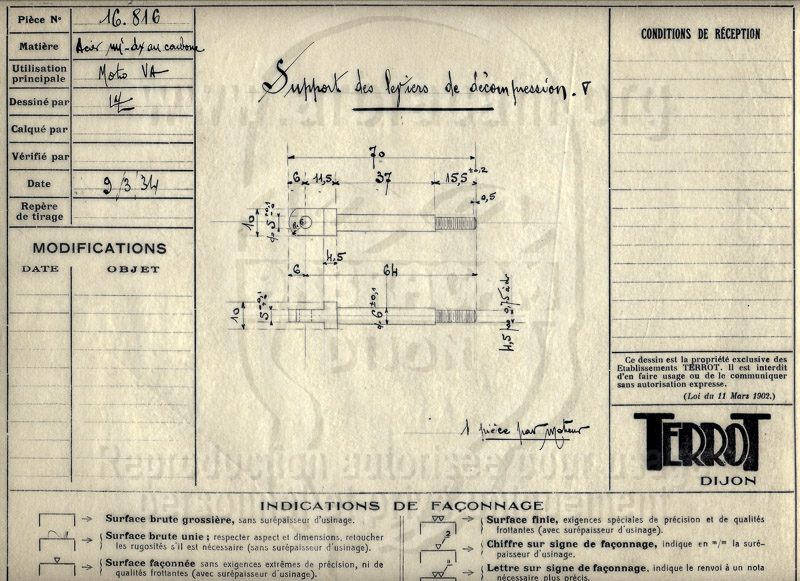 Pièce Nº 16.816
Matière Acier mi-dx au carbone
Utilisation principale Moto VA
Dessiné par
Calqué par
Vérifié par
Date 9/3 34
Repère de tirage
MODIFICATIONS
DATE OBJET
Support des leviers de décompression.
70
6 11,5 37 15,5 ±0,2
0,5
10
4,5
6 64
10
1 pièce par moteur
CONDITIONS DE RÉCEPTION
Ce dessin est la propriété exclusive des
Etablissements TERROT. Il est interdit
d'en faire usage ou de le communiquer
sans autorisation expresse.
(Loi du 11 Mars 1902.)
TERROT
DIJON
INDICATIONS DE FAÇONNAGE
Surface brute grossière, sans surépaisseur d'usinage.
Surface brute unie ; respecter aspect et dimensions, retoucher
les rugosités s'il est nécessaire (sans surépaisseur d'usinage).
Surface façonnée sans exigences extrêmes de précision, ni de
qualités frottantes (avec surépaisseur d'usinage).
Surface finie, exigences spéciales de précision et de qualités
frottantes (avec surépaisseur d'usinage).
Chiffre sur signe de façonnage, indique en m/m la suré-
paisseur d'usinage.
Lettre sur signe de façonnage, indique le renvoi à un nota
nécessaire plus précis.